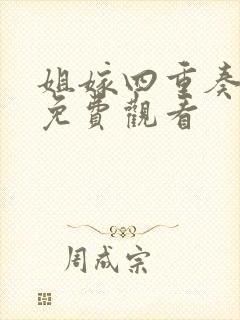 姐嫁四重奏
免費觀看
周成宗